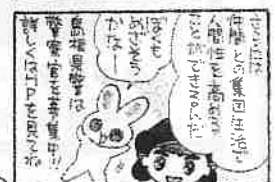 ここでは
仲間との集団生活で
人間性を高める
ことができるんだ
ぼくも
めざそう
かなー
島根県警は
警察官を募集中!!
詳しくはHPを見てね